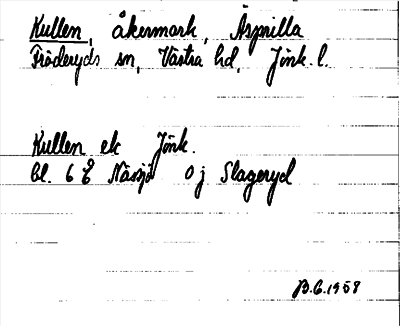 Kullen, åkermark, Äsprilla
Fröderyds sn, Västra hd, Jönk. l.
Kullen ek Jönk.
bl. 6 E Nässjö 0 j Slageryd
B.G. 1958